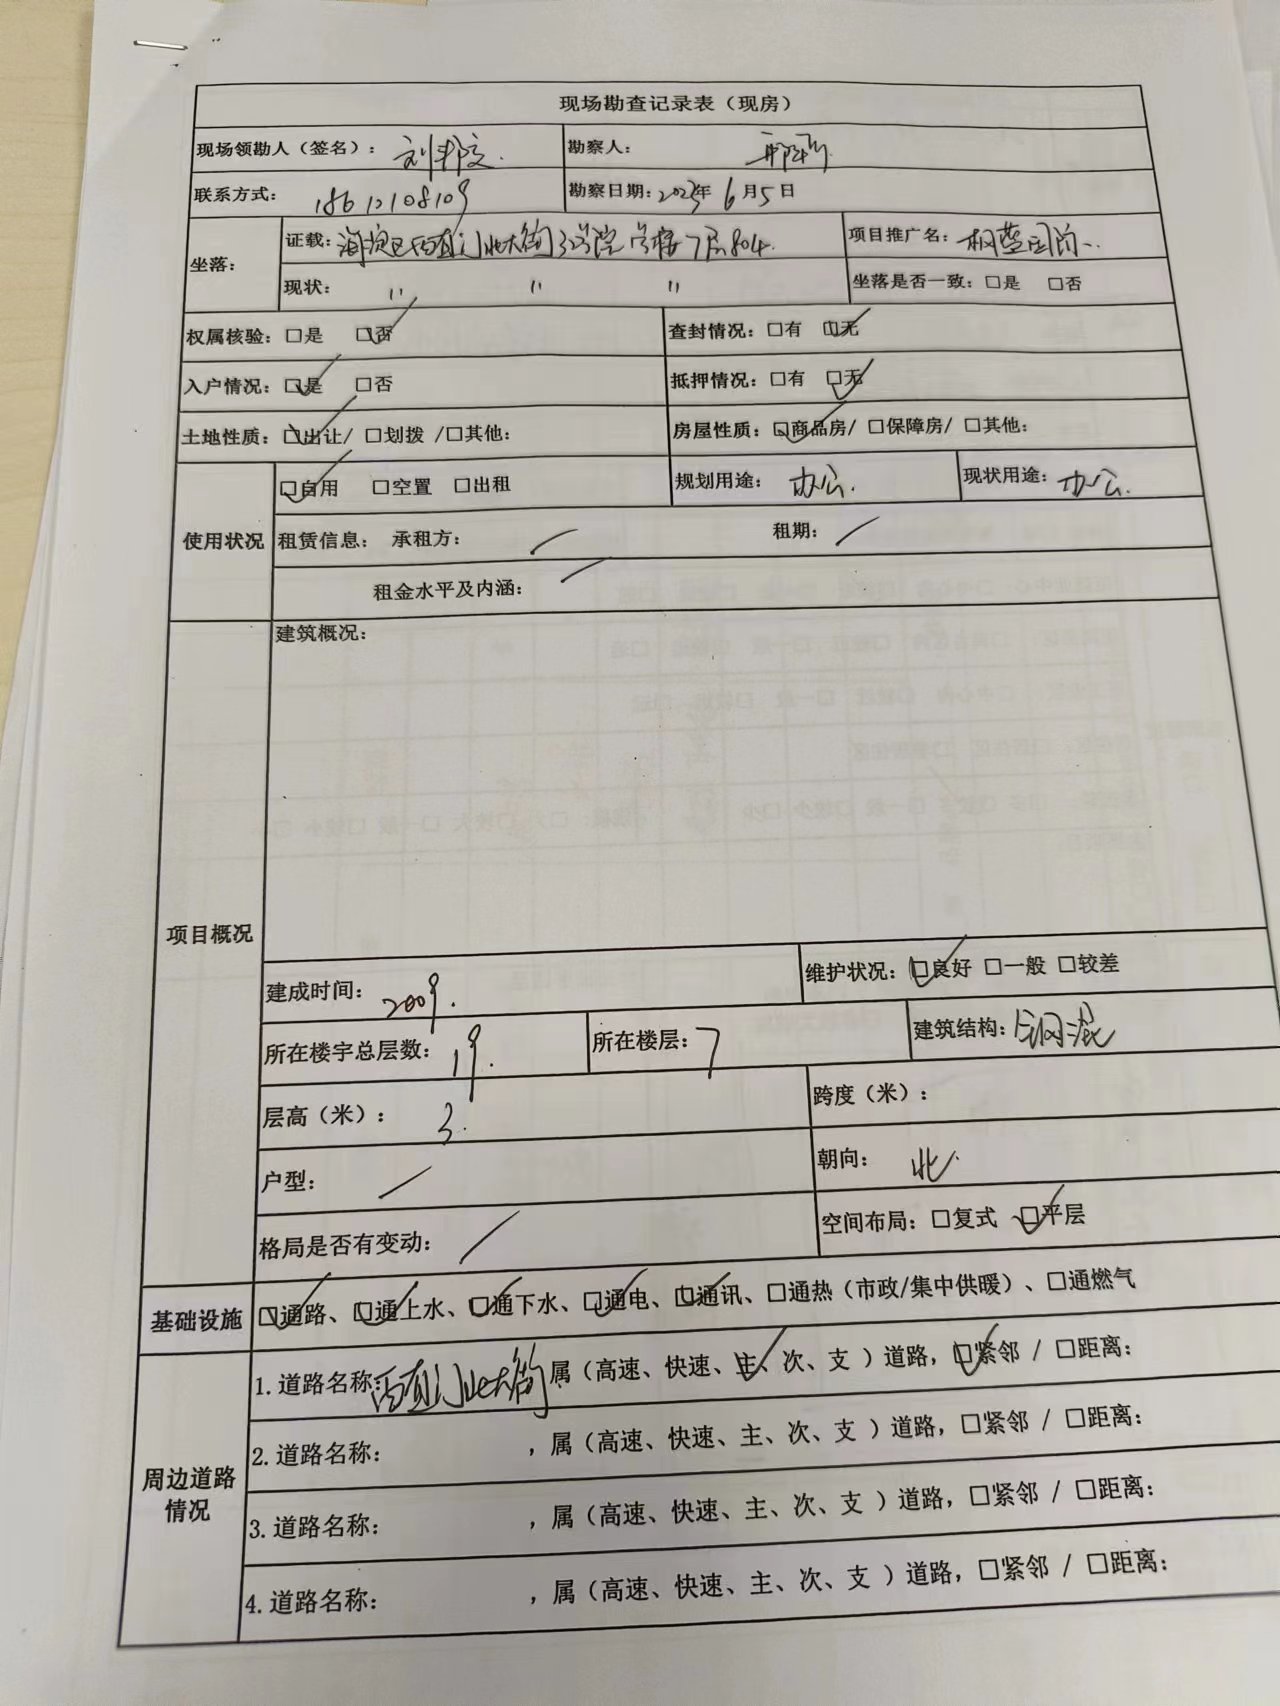 现场勘查记录表（现房）
现场领勘人（签名）： 刘 勘察人：
联系方式： 18612108109 勘察日期：2023年6月5日
坐落： 证载：海淀区西直门北大街32号院 号楼7层804. 项目推广名：枫蓝国际
现状： 〃 〃 〃 坐落是否一致：□是 □否
权属核验：□是 ☑否 查封情况：□有 ☑无
入户情况：☑是 □否 抵押情况：□有 ☑无
土地性质：☑出让/ □划拨 /□其他： 房屋性质：☑商品房/ □保障房/ □其他：
使用状况 ☑自用 □空置 □出租 规划用途： 办公. 现状用途：办公.
租赁信息： 承租方： / 租期： /
租金水平及内涵： /
项目概况 建筑概况：
建成时间： 2009. 维护状况：☑良好 □一般 □较差
所在楼宇总层数： 19. 所在楼层： 7 建筑结构：钢混
层高（米）： 3. 跨度（米）：
户型： / 朝向： 北.
格局是否有变动： / 空间布局：□复式 ☑平层
基础设施 ☑通路、☑通上水、☑通下水、☑通电、☑通讯、□通热（市政/集中供暖）、□通燃气
周边道路情况 1.道路名称：西直门北大街 属（高速、快速、主✓、次、支 ）道路，☑紧邻 / □距离：
2.道路名称： ，属（高速、快速、主、次、支 ）道路，□紧邻 / □距离：
3.道路名称： ，属（高速、快速、主、次、支 ）道路，□紧邻 / □距离：
4.道路名称： ，属（高速、快速、主、次、支 ）道路，□紧邻 / □距离：